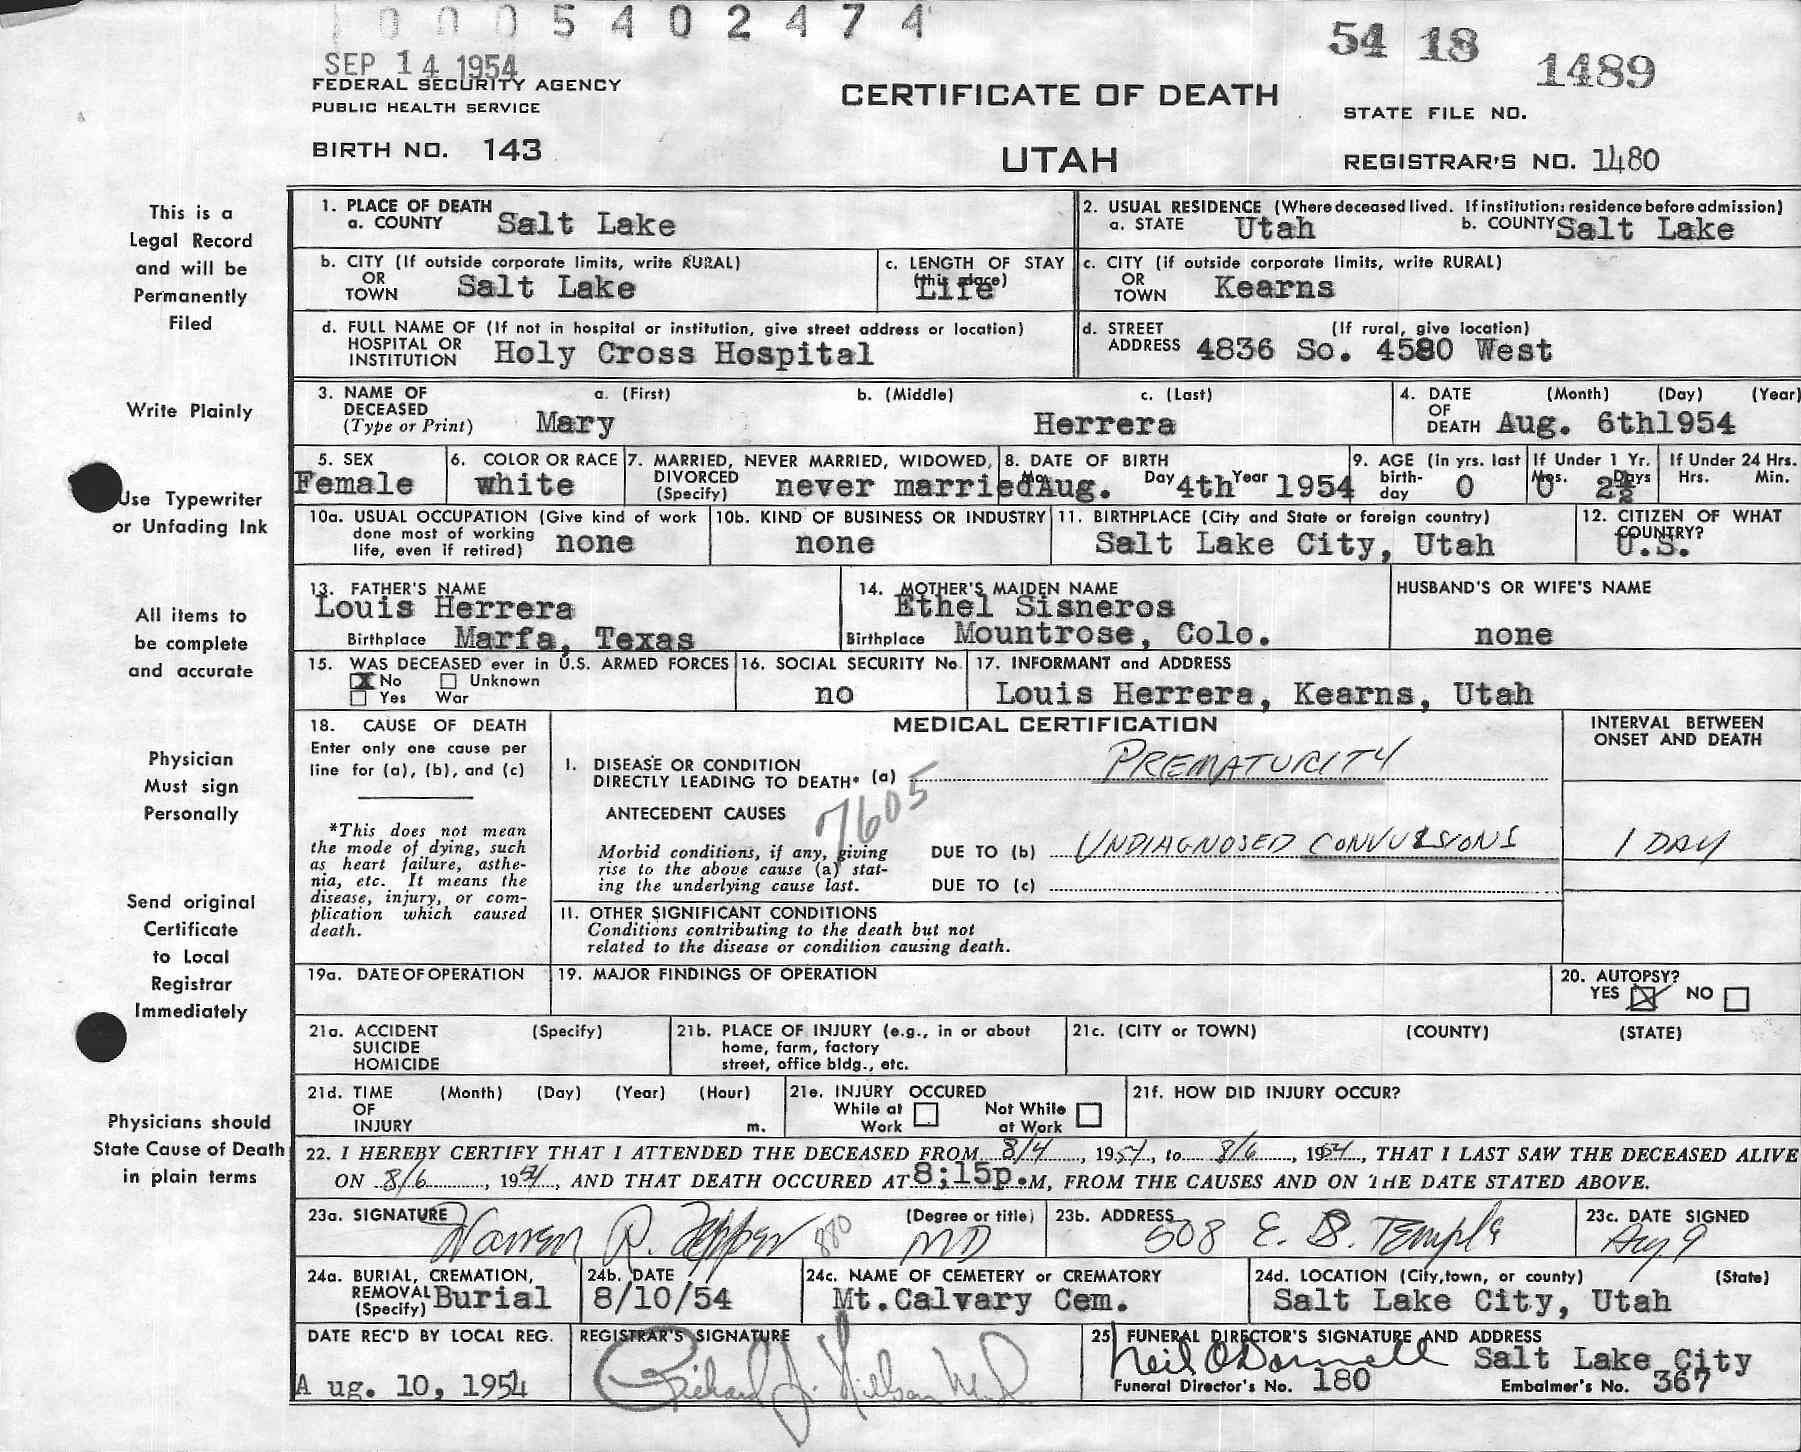 0005402474
SEP 14 1954
54 18 1489
FEDERAL SECURITY AGENCY
PUBLIC HEALTH SERVICE
CERTIFICATE OF DEATH
STATE FILE NO.
BIRTH NO. 143
UTAH
REGISTRAR'S NO. 1480
This is a
Legal Record
and will be
Permanently
Filed
Write Plainly
Use Typewriter
or Unfading Ink
All items to
be complete
and accurate
Physician
Must sign
Personally
Send original
Certificate
to Local
Registrar
Immediately
Physicians should
State Cause of Death
in plain terms
1. PLACE OF DEATH
a. COUNTY Salt Lake
2. USUAL RESIDENCE (Where deceased lived. If institution: residence before admission)
a. STATE Utah b. COUNTY Salt Lake
b. CITY (If outside corporate limits, write RURAL)
OR
TOWN Salt Lake
c. LENGTH OF STAY
(this place)
Life
c. CITY (if outside corporate limits, write RURAL)
OR
TOWN Kearns
d. FULL NAME OF (If not in hospital or institution, give street address or location)
HOSPITAL OR
INSTITUTION Holy Cross Hospital
d. STREET (If rural, give location)
ADDRESS 4836 So. 4580 West
3. NAME OF
DECEASED
(Type or Print)
a. (First) b. (Middle) c. (Last)
Mary Herrera
4. DATE (Month) (Day) (Year)
OF
DEATH Aug. 6th1954
5. SEX
Female
6. COLOR OR RACE
white
7. MARRIED, NEVER MARRIED, WIDOWED,
DIVORCED
(Specify) never married
8. DATE OF BIRTH
Mo. Aug. Day 4th Year 1954
9. AGE (In yrs. last
birth-
day 0
If Under 1 Yr.
Mos. Days
0 2½
If Under 24 Hrs.
Hrs. Min.
10a. USUAL OCCUPATION (Give kind of work
done most of working
life, even if retired) none
10b. KIND OF BUSINESS OR INDUSTRY
none
11. BIRTHPLACE (City and State or foreign country)
Salt Lake City, Utah
12. CITIZEN OF WHAT
COUNTRY?
U.S.
13. FATHER'S NAME
Louis Herrera
Birthplace Marfa, Texas
14. MOTHER'S MAIDEN NAME
Ethel Sisneros
Birthplace Mountrose, Colo.
HUSBAND'S OR WIFE'S NAME
none
15. WAS DECEASED ever in U.S. ARMED FORCES
X No Unknown
Yes War
16. SOCIAL SECURITY No.
no
17. INFORMANT and ADDRESS
Louis Herrera, Kearns, Utah
18. CAUSE OF DEATH
Enter only one cause per
line for (a), (b), and (c)
*This does not mean
the mode of dying, such
as heart failure, asthe-
nia, etc. It means the
disease, injury, or com-
plication which caused
death.
MEDICAL CERTIFICATION
INTERVAL BETWEEN
ONSET AND DEATH
I. DISEASE OR CONDITION
DIRECTLY LEADING TO DEATH* (a) PREMATURITY
ANTECEDENT CAUSES
7605
Morbid conditions, if any, giving
rise to the above cause (a) stat-
ing the underlying cause last.
DUE TO (b) UNDIAGNOSED CONVULSIONS 1 DAY
DUE TO (c)
II. OTHER SIGNIFICANT CONDITIONS
Conditions contributing to the death but not
related to the disease or condition causing death.
19a. DATE OF OPERATION
19. MAJOR FINDINGS OF OPERATION
20. AUTOPSY?
YES X NO
21a. ACCIDENT (Specify)
SUICIDE
HOMICIDE
21b. PLACE OF INJURY (e.g., in or about
home, farm, factory
street, office bldg., etc.
21c. (CITY or TOWN) (COUNTY) (STATE)
21d. TIME (Month) (Day) (Year) (Hour)
OF
INJURY m.
21e. INJURY OCCURED
While at Work
Not While at Work
21f. HOW DID INJURY OCCUR?
22. I HEREBY CERTIFY THAT I ATTENDED THE DECEASED FROM 8/4, 1954, to 8/6, 1954, THAT I LAST SAW THE DECEASED ALIVE
ON 8/6, 1954, AND THAT DEATH OCCURED AT 8;15p.M, FROM THE CAUSES AND ON THE DATE STATED ABOVE.
23a. SIGNATURE (Degree or title)
Warren R. Tepper 880 MD
23b. ADDRESS
508 E. S. Temple
23c. DATE SIGNED
Aug 9
24a. BURIAL, CREMATION,
REMOVAL
(Specify) Burial
24b. DATE
8/10/54
24c. NAME OF CEMETERY or CREMATORY
Mt.Calvary Cem.
24d. LOCATION (City, town, or county) (State)
Salt Lake City, Utah
DATE REC'D BY LOCAL REG.
Aug. 10, 1954
REGISTRAR'S SIGNATURE
Richard J. Nielsen M.D.
25 FUNERAL DIRECTOR'S SIGNATURE AND ADDRESS
Neil O'Donnell Salt Lake City
Funeral Director's No. 180 Embalmer's No. 367